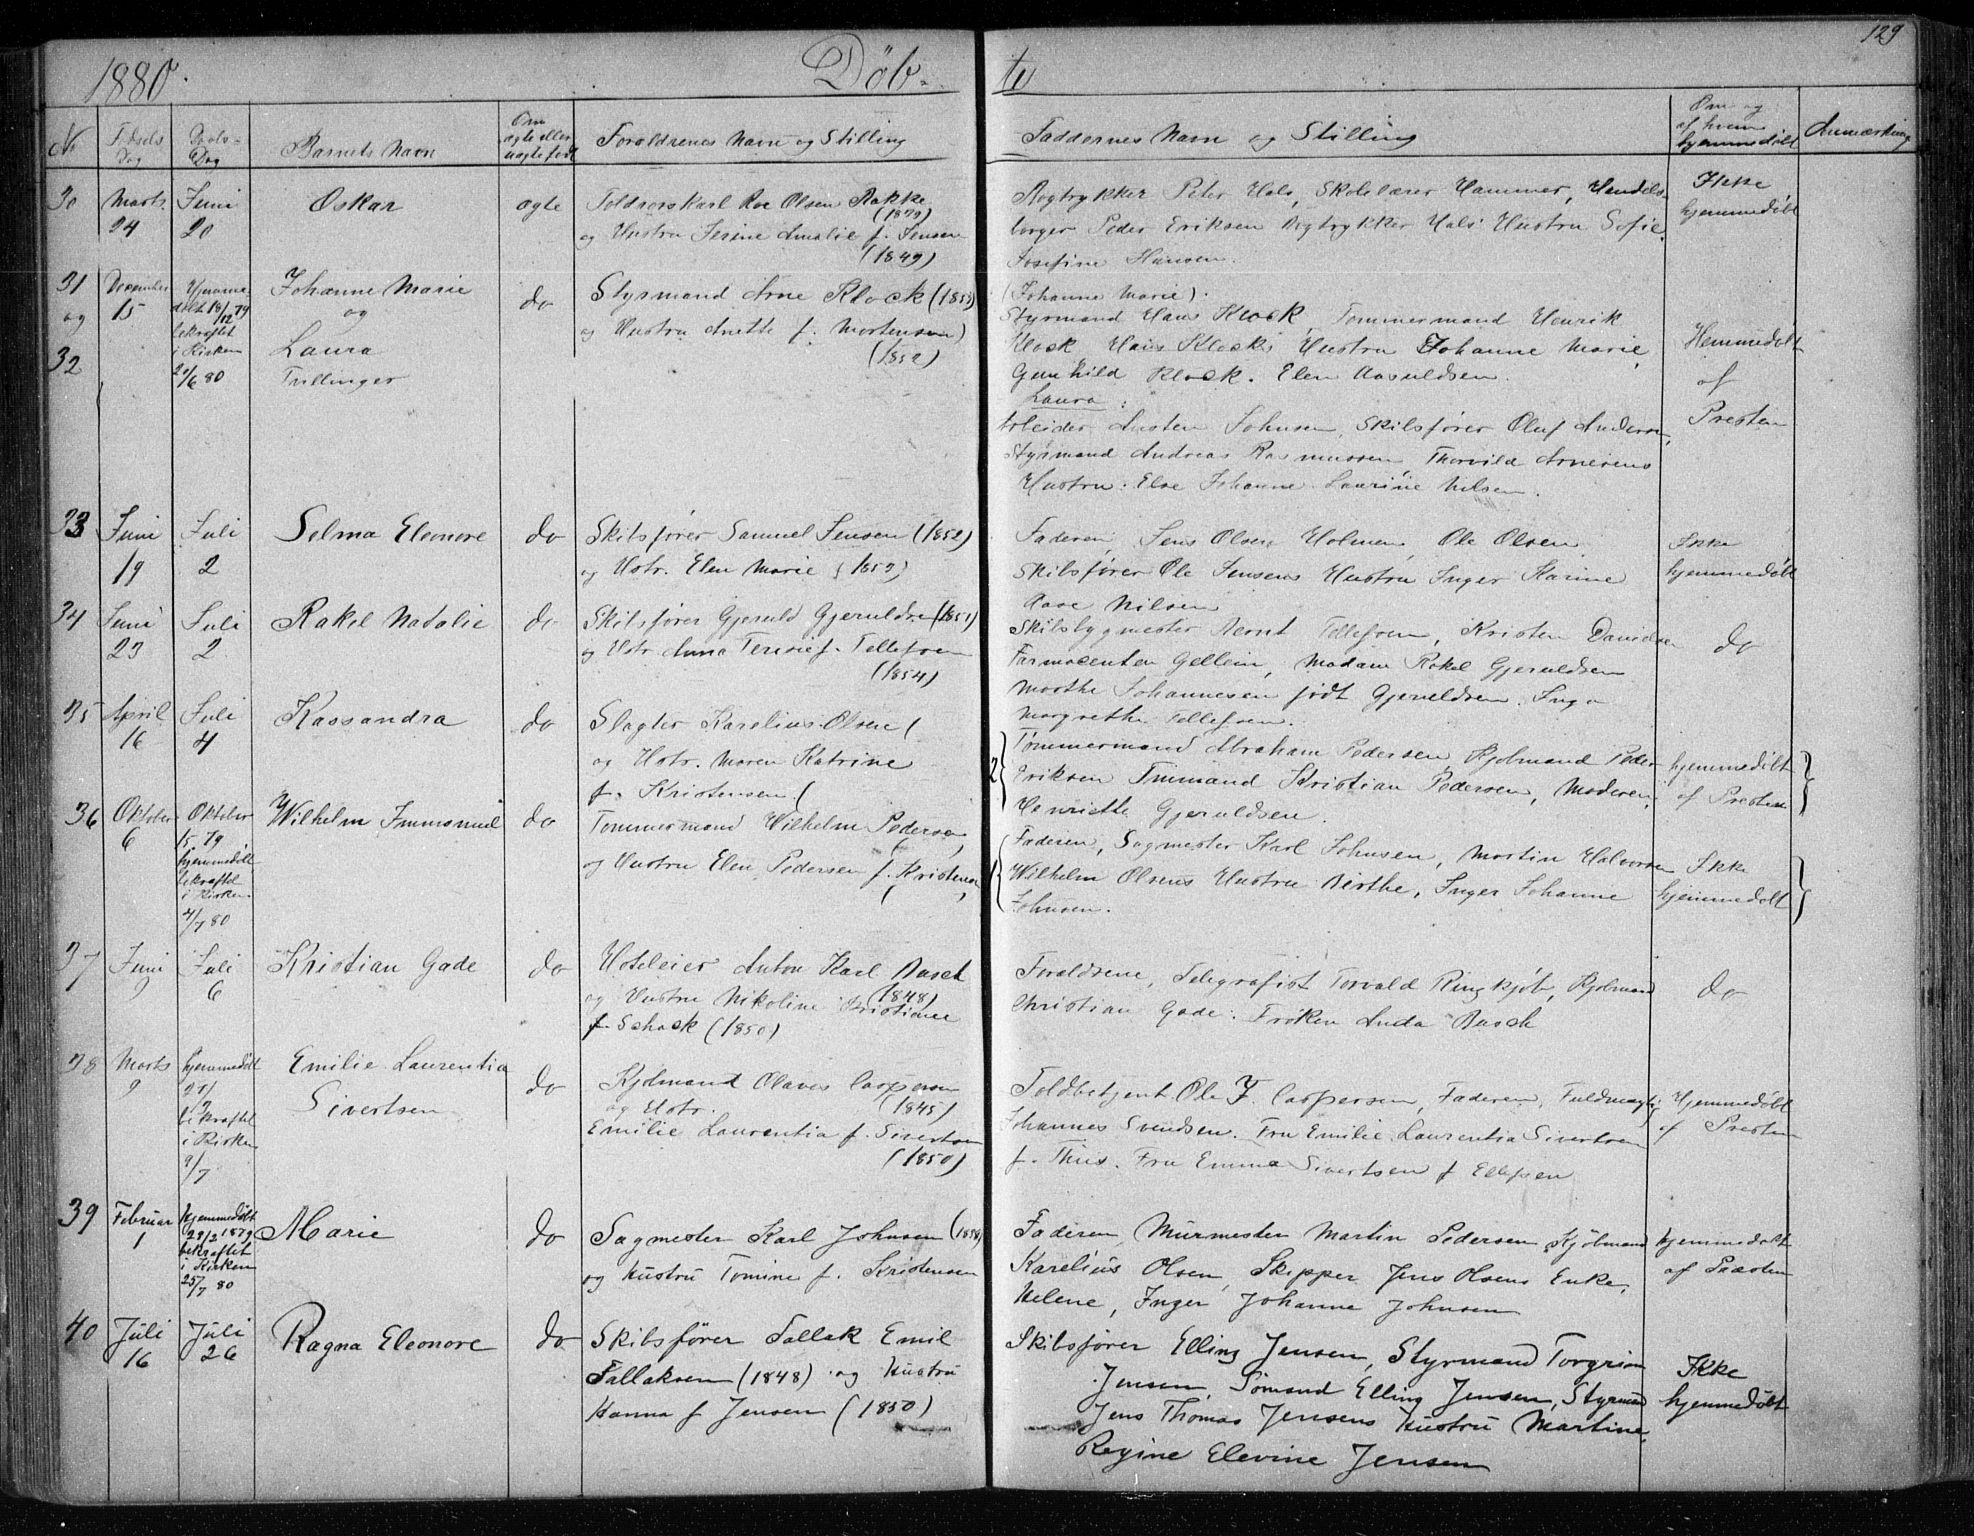 129
1880.
Döb-
te
No
Fødsels
Dag
Daabs-
Dag
Barnets Navn
Om
ægte eller
uægte født
Foraldrenes Navn og Stilling
Faddernes Navn og Stilling
Om og
af hvem
hjemmedøbt
Anmærkning
30
Marts
24
Juni
20
Oskar
ægte
Olsen Bakke
og Hustru Serine Amalie f. Jensen
(1849)
Bogtrykker Peter Hals, Skolelærer Hammer, Handels-
borger Peder Eriksen Bogtrykker Hals' Hustru Sofie,
Josefine Hansen.
Ikke
hjemmedöbt
31
og
32
December
15
Hjemme
döbt 18/12 79
bekraftet
i Kirken
20/6 80
Johanne Marie
og
Laura
Tvillinger
do
Styrmand Arne Klock (1853)
og Hustru Anette f. Mortensen
(1852)
(Johanne Marie).
Styrmand Hans Klock, Tømmermand Henrik
Klock Hans Klocks Hustru Johanne Marie,
Gunhild Klock. Elen Aasuldsen.
Laura:
Arbeider Austen Johnsen, Skibsfører Oluf Andersen,
Styrmand Andreas Rasmussen, Thorvild Arnesens
Hustru: Else Johanne. Laurine Nilsen.
Hemmedøbt
af
Presten
33
Juni
19
Juli
2
Selma Eleonore
do
Skibsfører Samuel Jensen (1852)
og Hstr. Elen Marie
Faderen, Jens Olsen Holmen, Ole Olsen.
Skibsfører Ole Jensens Hustru Inger Karine
Aase Nilsen
Ikke
hjemmedöbt
34
Juni
23
Juli
2
Rakel Natalie
do
Skibsfører Gjeruld Gjeruldsen (1851)
og Hstr. Anna Terese f. Tellefsen
(1854)
Skibsbygmester Bernt Tellefsen, Kristen Davidsen
Farmacenten Gellein, Madam Rakel Gjeruldsen
Marthe Johannesen født Gjeruldsen. Inga
Margrethe Tellefsen.
do
35
April
16
Juli
4
Kassandra
do
Slagter Karelius Olsen (
og Hstr. Maren Katrine
f. Kristensen (
2 {
Tømmermand Abraham Pedersen, Kjøbmand Peder
Eriksen Tmmand Kristian Pedersen, Moderen,
Henriette Gjeruldsen.
hjemmedøbt
af Presten
}
36
Oktober
6
Oktober
15. 79
hjemmedöbt
bekraftet
i Kirken.
4/7 80
Wilhelm Immanuel
do
Tømmermand Wilhelm Pedersen
og Hustru Elen Pedersen f. Kristensen
( )
1 {
Faderen, Sagmester Karl Johnsen, Martin Halvorsen
Wilhelm Olsens Hustru Birthe, Inger Johanne
Johnsen.
Ikke
hjemmedøbt
}
37
Juni
9
Juli
6
Kristian Gade
do
Hoteleier Anton Karl Basch
(1848)
og Hustru Nikoline Kristiane
f. Schack (1850)
Foraldrene, Telegrafist Torvald Ringkjøb, Kjøbmand
Christian Gade. Frøken Anda Basch
do
38
Marts
9
hjemmedöbt
bekraftet
i Kirken
9/7
Emilie Laurentia
Sivertsen
do
Kjøbmand Olaves Caspersen
og Hstr. (1845)
Emilie Laurentia f. Sivertsen
(1850)
Toldbetjent Ole J. Caspersen, Faderen, Fuldmægtig
Johannes Svendsen. Fru Emilie Laurentia Sivertsen
f. Thiis. Fru Emma Sivertsen f Ellefsen
Hjemmedøbt
af Presten
39
Februar
1
Hjemmedöbt
bekraftet
i Kirken
25/7 80
Marie
do
Sagmester Karl Johnsen (1858)
og Hustru Tomine f. Kristensen
Faderen, Murmester Martin Pedersen, Kjøbmand
Karelius Olsen, Skipper Jens Olsens Enke,
Helene, Inger Johanne Johnsen
hjemmedøbt
af Præsten
40
Juli
16
Juli
26
Ragna Eleonore
do
Skibsfører Tallak Emil
Tallaksen (1848) og Hustru
Hanna f Jensen (1850)
Skibsfører Elling Jensen, Styrmand Torgrim
Jensen, Sømand Elling Jensen, Styrmand
Jens Thomas Jensens Hustru Martine,
Regine Elevine Jensen
Ikke
hjemmedöbt